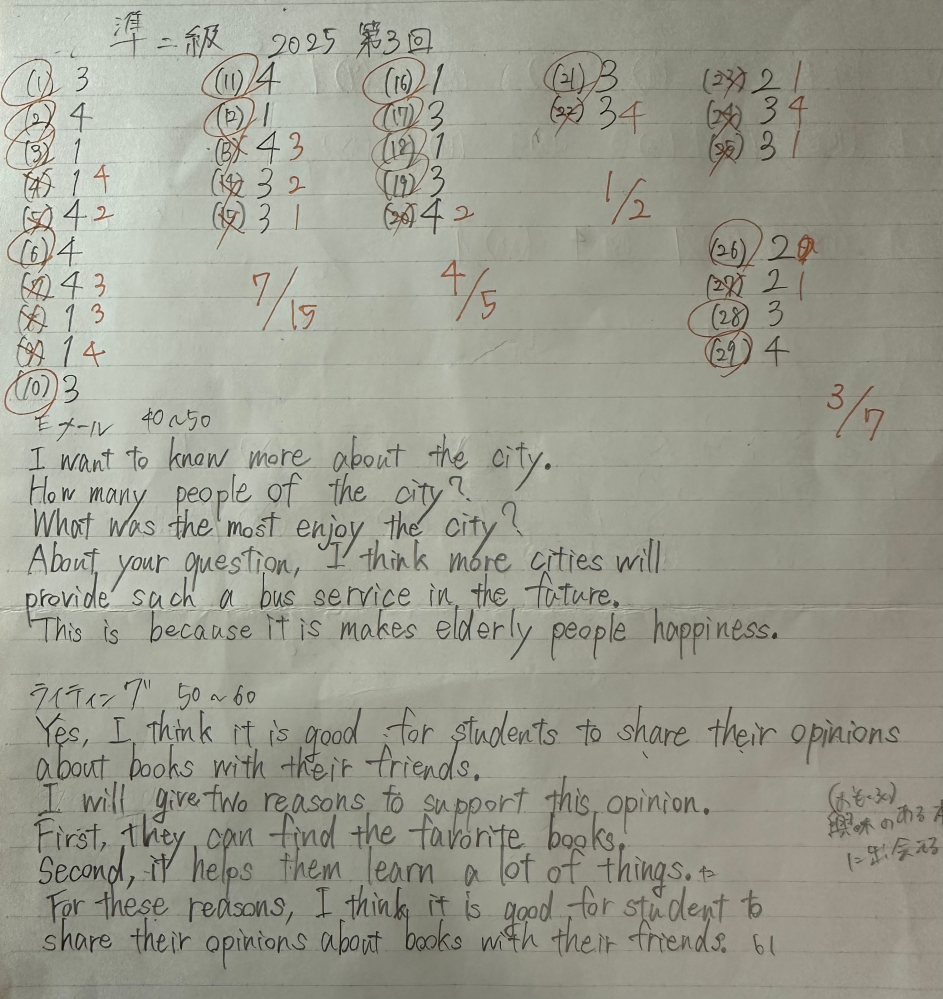 準二級 2025 第3回
(1) 3
(2) 4
(3) 1
(4) 1 4
(5) 4 2
(6) 4
(7) 4 3
(8) 1 3
(9) 1 4
(10) 3
(11) 4
(12) 1
(13) 4 3
(14) 3 2
(15) 3 1
7/15
(16) 1
(17) 3
(18) 1
(19) 3
(20) 4 2
4/5
(21) 3
(22) 3 4
1/2
(23) 2 1
(24) 3 4
(25) 3 1
(26) 2
(27) 2 1
(28) 3
(29) 4
3/7
Eメール 40~50
I want to know more about the city.
How many people of the city?
What was the most enjoy the city?
About your question, I think more cities will
provide such a bus service in the future.
This is because it is makes elderly people happiness.
ライティング 50~60
Yes, I think it is good for students to share their opinions
about books with their friends.
I will give two reasons to support this opinion.
First, they can find the favorite books.
Second, it helps them learn a lot of things.
For these reasons, I think it is good for student to
share their opinions about books with their friends. 61
興味のある本
に出会える